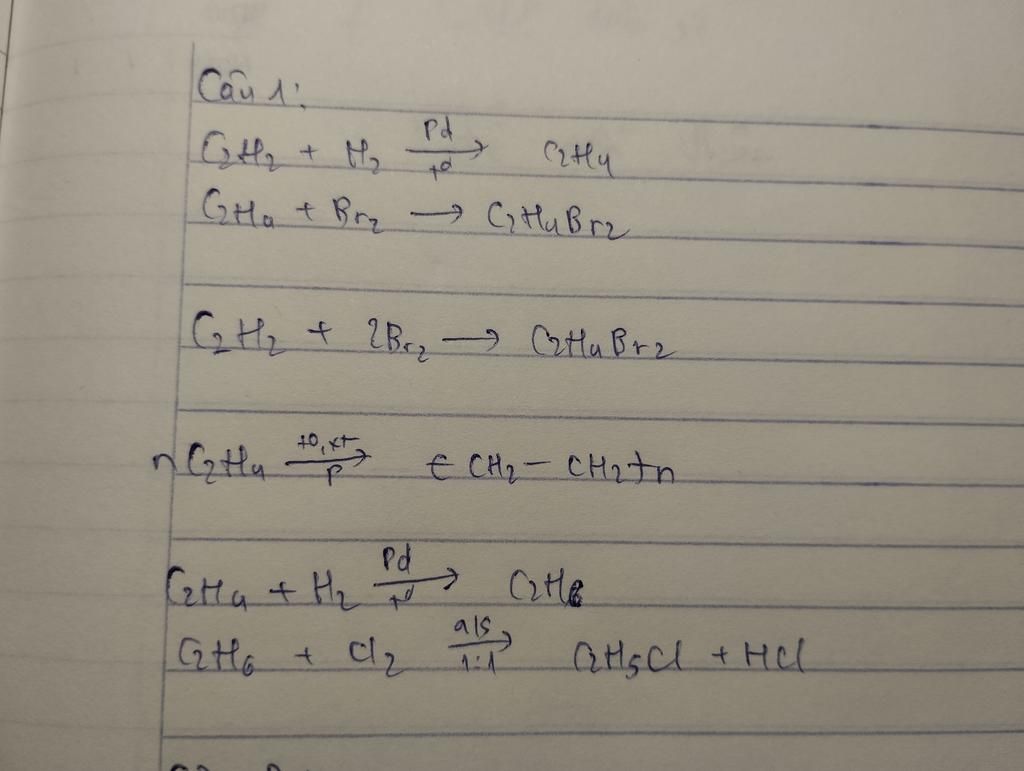 Câu 1:
C2H2 + H2 →(Pd, t°) C2H4
C2H4 + Br2 → C2H4Br2
C2H2 + 2Br2 → C2H4Br2
n C2H4 →(t°, xt, P) (CH2 – CH2)n
C2H4 + H2 →(Pd, t°) C2H6
C2H6 + Cl2 →(a/s, 1:1) C2H5Cl + HCl